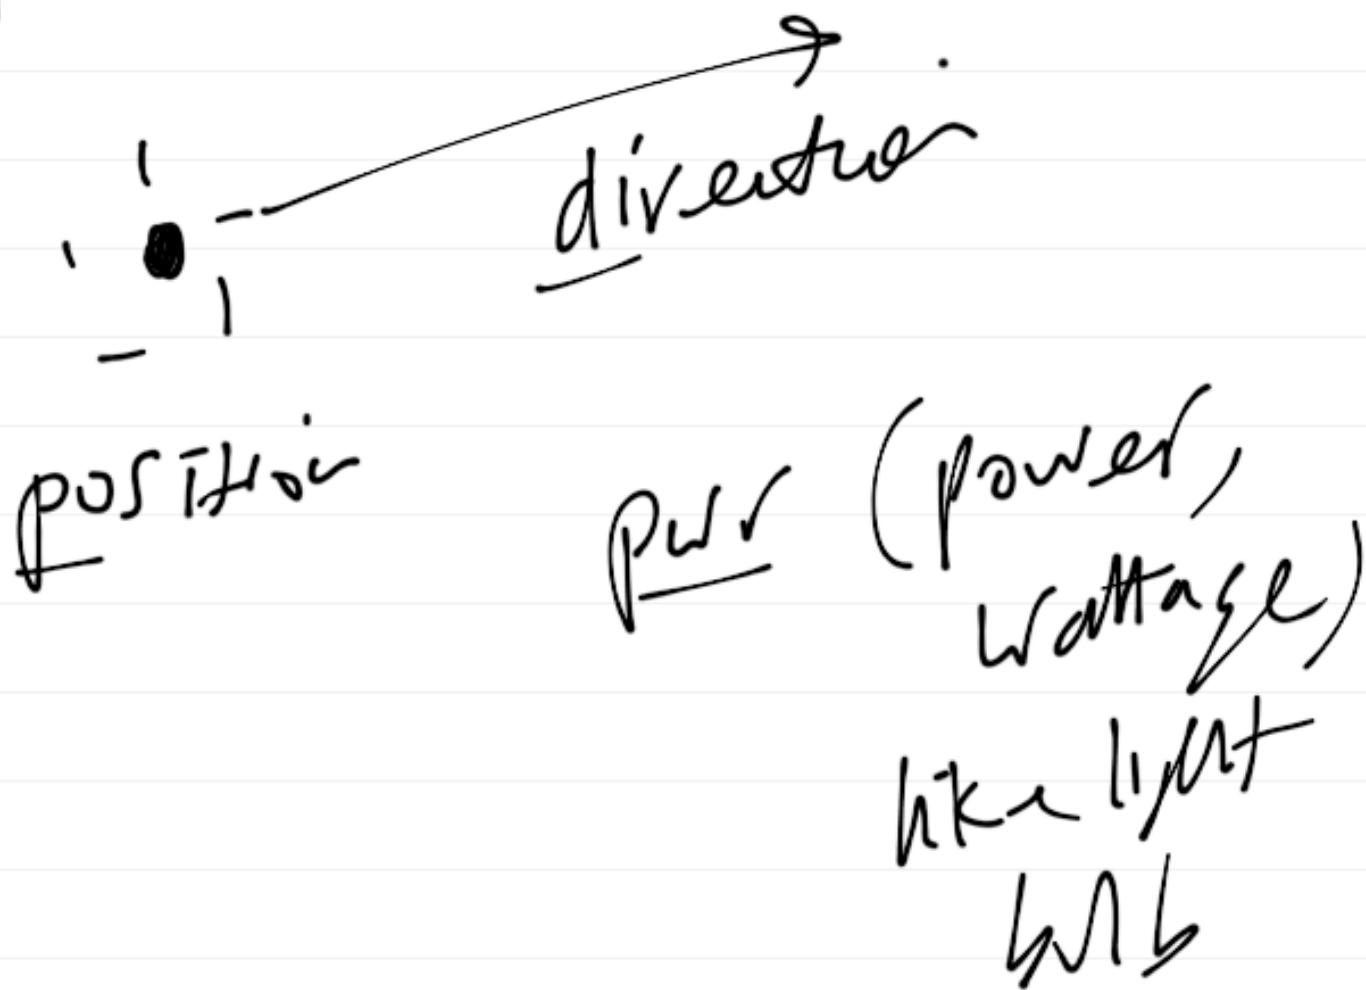 direction
position
pwr (power,
wattage)
like light
bulb